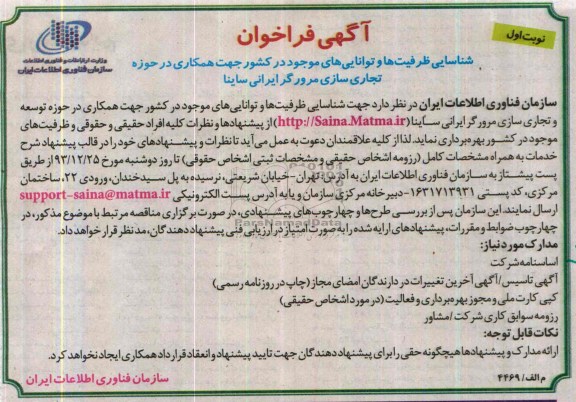 نوبت اول
آگهی فراخوان
شناسایی ظرفیت‌ها و توانایی‌های موجود در کشور جهت همکاری در حوزه
تجاری سازی مرورگر ایرانی ساینا
وزارت ارتباطات و فناوری اطلاعات
سازمان فناوری اطلاعات ایران
سازمان فناوری اطلاعات ایران در نظر دارد جهت شناسایی ظرفیت‌ها و توانایی‌های موجود در کشور جهت همکاری در حوزه توسعه
و تجاری سازی مرورگر ایرانی ساینا (http://Saina.Matma.ir) از پیشنهادها و نظرات کلیه افراد حقیقی و حقوقی و ظرفیت‌های
موجود در کشور بهره‌برداری نماید. لذا از کلیه علاقمندان دعوت به عمل می‌آید تا نظرات و پیشنهادهای خود را در قالب پیشنهاد شرح
خدمات به همراه مشخصات کامل (رزومه اشخاص حقیقی و مشخصات ثبتی اشخاص حقوقی) تا روز دوشنبه مورخ ۹۳/۱۲/۲۵ از طریق
پست پیشتاز به سازمان فناوری اطلاعات ایران به آدرس: تهران - خیابان شریعتی، نرسیده به پل سیدخندان، ورودی ۲۲، ساختمان
مرکزی، کد پستی ۱۶۳۱۷۱۳۹۳۱- دبیرخانه مرکزی سازمان و یا به آدرس پست الکترونیکی support-saina@matma.ir
ارسال نمایند. این سازمان پس از بررسی طرح‌ها و چهارچوب‌های پیشنهادی، در صورت برگزاری مناقصه مرتبط با موضوع مذکور، در
چهارچوب ضوابط و مقررات، پیشنهادهای ارایه شده را به صورت امتیاز در ارزیابی فنی پیشنهاد دهندگان، مدنظر قرار خواهد داد.
مدارک مورد نیاز:
اساسنامه شرکت
آگهی تاسیس/آگهی آخرین تغییرات در دارندگان امضای مجاز (چاپ در روزنامه رسمی)
کپی کارت ملی و مجوز بهره‌برداری و فعالیت (در مورد اشخاص حقیقی)
رزومه سوابق کاری شرکت/مشاور
نکات قابل توجه:
ارائه مدارک و پیشنهادها هیچگونه حقی را برای پیشنهاد دهندگان جهت تایید پیشنهاد و انعقاد قرارداد همکاری ایجاد نخواهد کرد.
م الف/ ۴۴۶۹
سازمان فناوری اطلاعات ایران